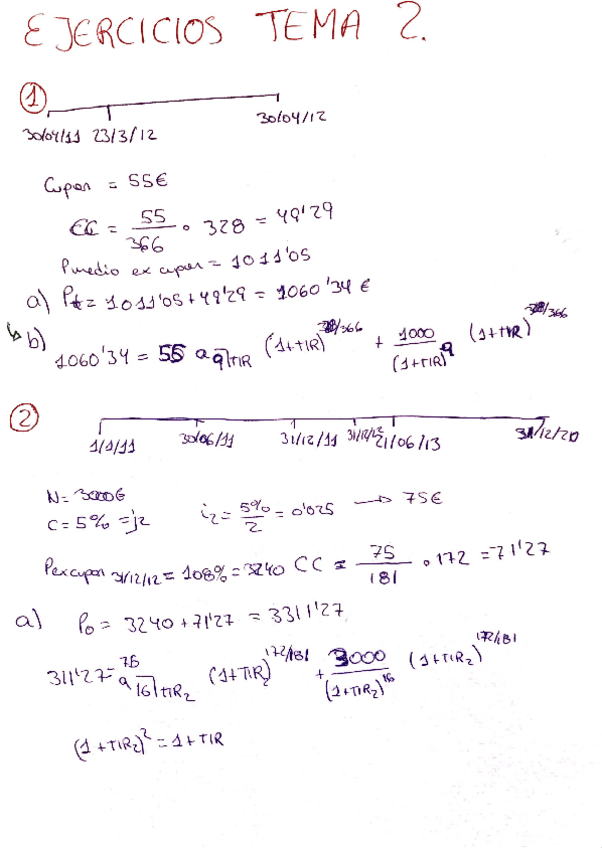 EJERCICIOS TEMA 2.
1
30/04/11 23/3/12 30/04/12
Cupon = 55€
CC = 55/366 · 328 = 49'29
Pmedio ex cupon = 1011'05
a) Pt = 1011'05 + 49'29 = 1060'34 €
↳ b) 1060'34 = 55 a 9|TIR (1+TIR)^328/366 + 1000/(1+TIR)^9 (1+TIR)^328/366
2
1/1/11 30/06/11 31/12/11 31/12/12 21/06/13 31/12/20
N = 3000€
C = 5% = j2 i2 = 5%/2 = 0'025 → 75€
Pexcupon 31/12/12 = 108% = 3240 CC = 75/181 · 172 = 71'27
a) P0 = 3240 + 71'27 = 3311'27
311'27 = 75 a 16|TIR2 (1+TIR)^172/181 + 3000/(1+TIR2)^16 (1+TIR2)^172/181
(1+TIR2)^2 = 1+TIR